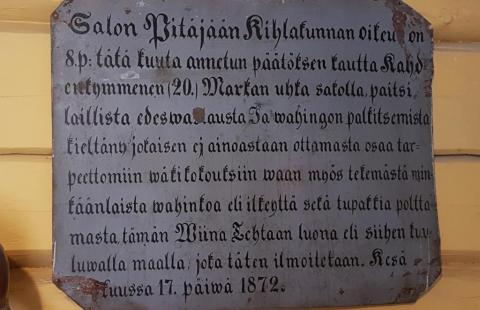 Salon Pitäjään Kihlakunnan oikeus on
8.p: tätä kuuta annetun päätöksen kautta Kahd
enkymmenen (20.) Markan uhka sakolla, paitsi,
laillista edeswastausta Ja wahingon palkitsemista
kieltäny jokaisen ej ainoastaan ottamasta osaa tar-
peettomiin wäkikokouksiin waan myös tekemästä min-
käänlaista wahinkoa eli ilkeyttä sekä tupakkia poltta-
masta, tämän Wiina Tehtaan luona eli siihen kuu-
luwalla maalla, joka täten ilmoitetaan. Kesä
kuussa 17. päiwä 1872.